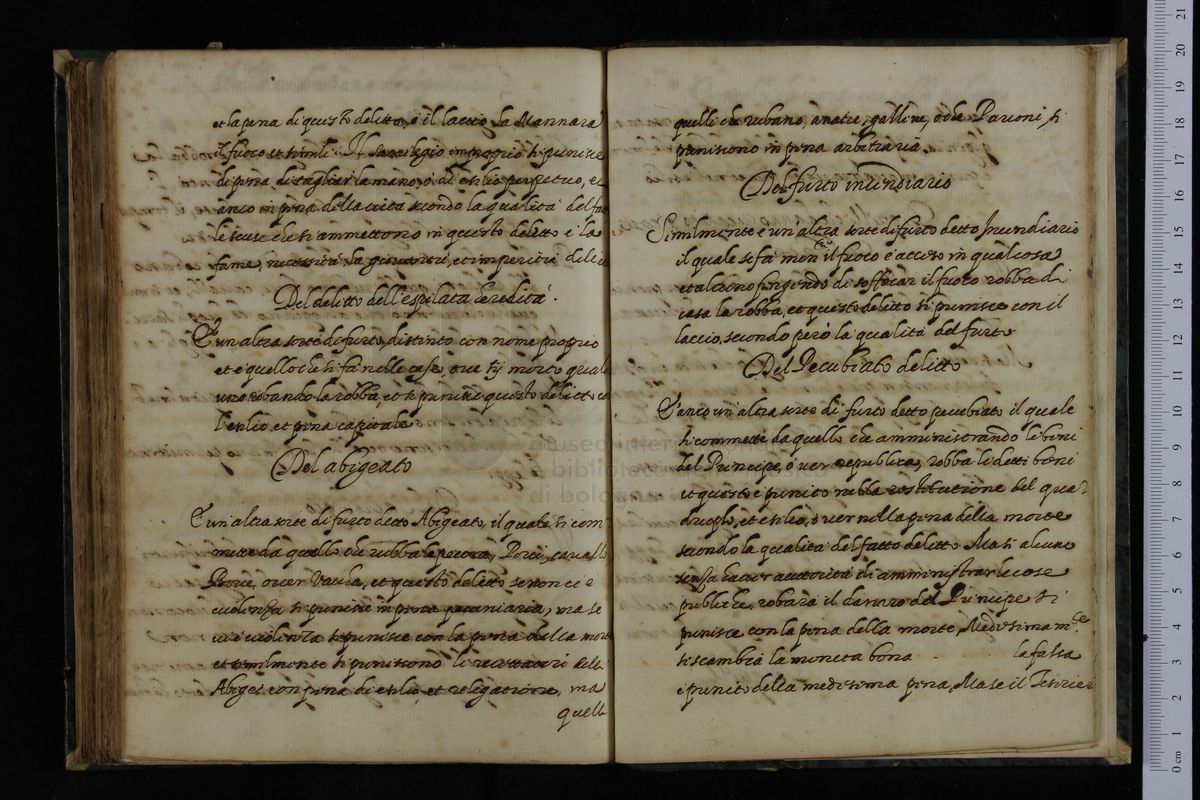 et la pena di questo delitto, è il laccio, la Mannara
il fuoco et simili. Il sacrilegio improprio si punisce
di pena di tagliar la mano, ò di esilio perpetuo, et
anco in pena della vita secondo la qualità del fat
le scuse che si ammettono in questo delitto è la
fame, necessità, la gioventù, et imperitia del
Del delitto dell'espilata heredità.
È un altra sorte di furto, distinto con nome proprio
et è quello che si fa nelle case, ove sij morto qual
uno robando la robba, et si punisce questo delitto co
l'esilio, et pena capitale
Del abigeato
È un altra sorte di furto detto Abigeato, il quale si com
mette da quello che robba le pecore, Porci, cavalli
Bove, over Vacha, et questo delitto se non ci è
violenza si punisce in pena pecuniaria, ma se
vi è violenza si punisce con la pena della mort
et similmente si puniscono li recettatori delli
Abigei con pena di esilio, et relegatione, ma
quelli
quelli che rubano, anatre, galline, o che Pavoni si
puniscono in pena arbitraria.
Del furto incendiario
Similmente è un altra sorte di furto detto Incendiario
il quale si fa mentre il fuoco è acceso in qual cosa
et alcuno fingendo di soffocar il fuoco robba di
casa la robba, et questo delitto si punisce con il
laccio, secondo però la qualità del furto
Del Peculiato delitto
È anco un altra sorte di furto detto peculiato il quale
si commette da quello che amministrando le beni
del Principe, ò ver republica, robba li detti beni
et questo è punito nella restitutione del qua
druplo, et esilio, ò ver nella pena della morte
secondo la qualità del fatto delitto. Ma si alcuno
senza haver autorità di amministrar le cose
publiche, robara il danaro del Principe si
punisce con la pena della morte, Medesimam.te
si scambia la moneta bona la falsa
è punito della medesima pena, Ma se il Tesorier
museo inter
biblioteca
di bologna